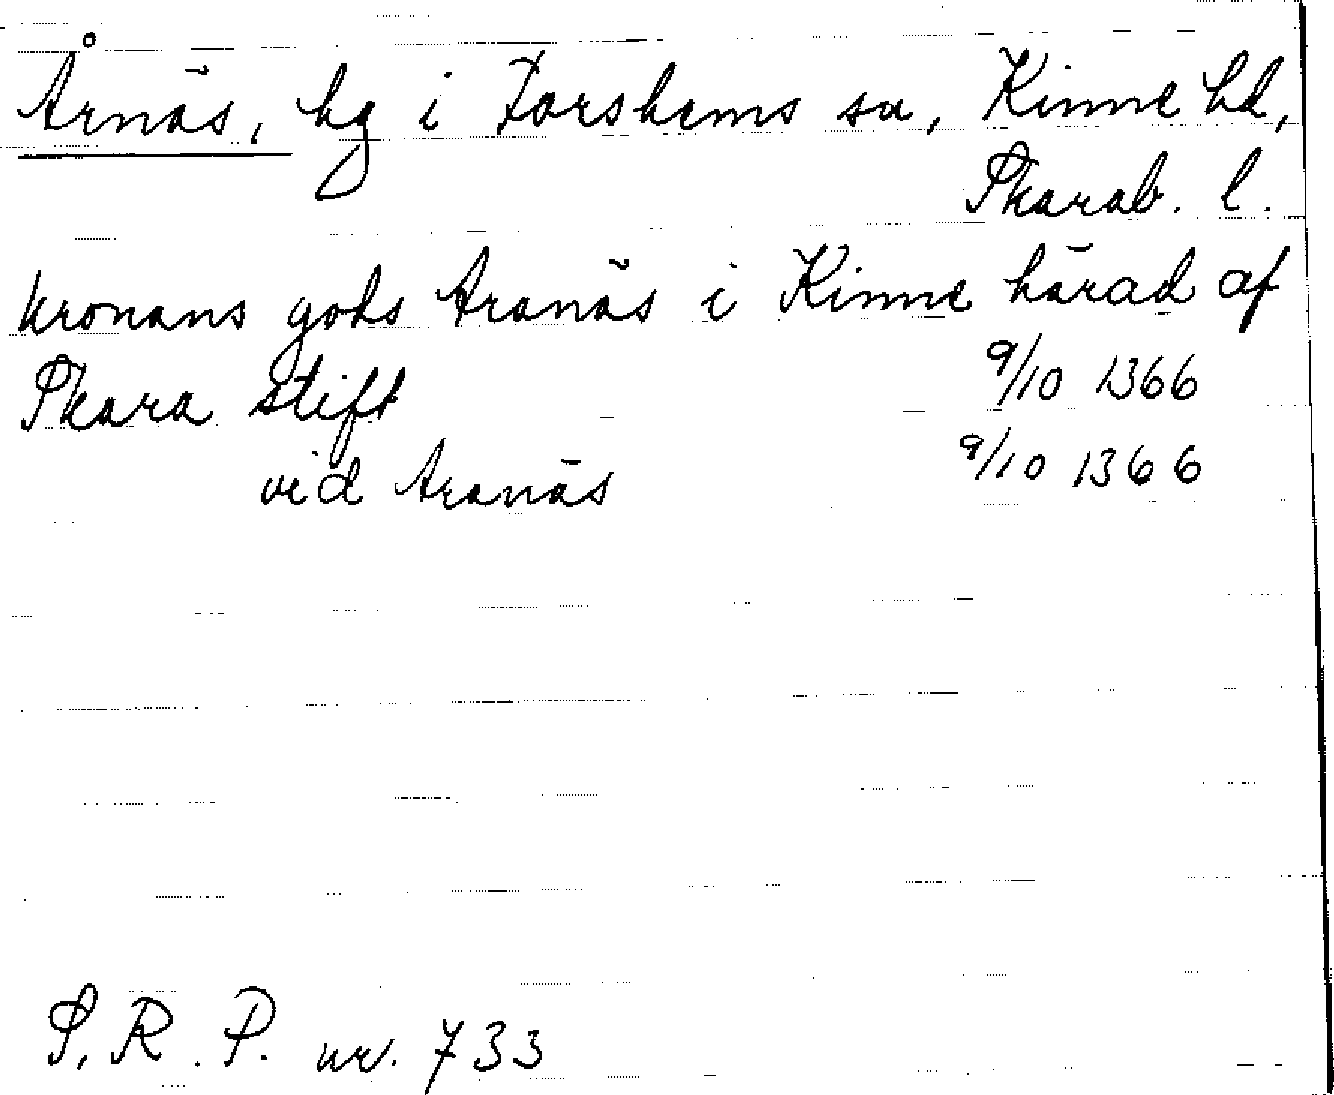 Årnäs, hg i Forshems sn, Kinne hd,
Skarab. l.
kronans gods Aranäs i Kinne härad af
Skara stift 9/10 1366
vid Aranäs 9/10 1366
S.R.P. nr. 733